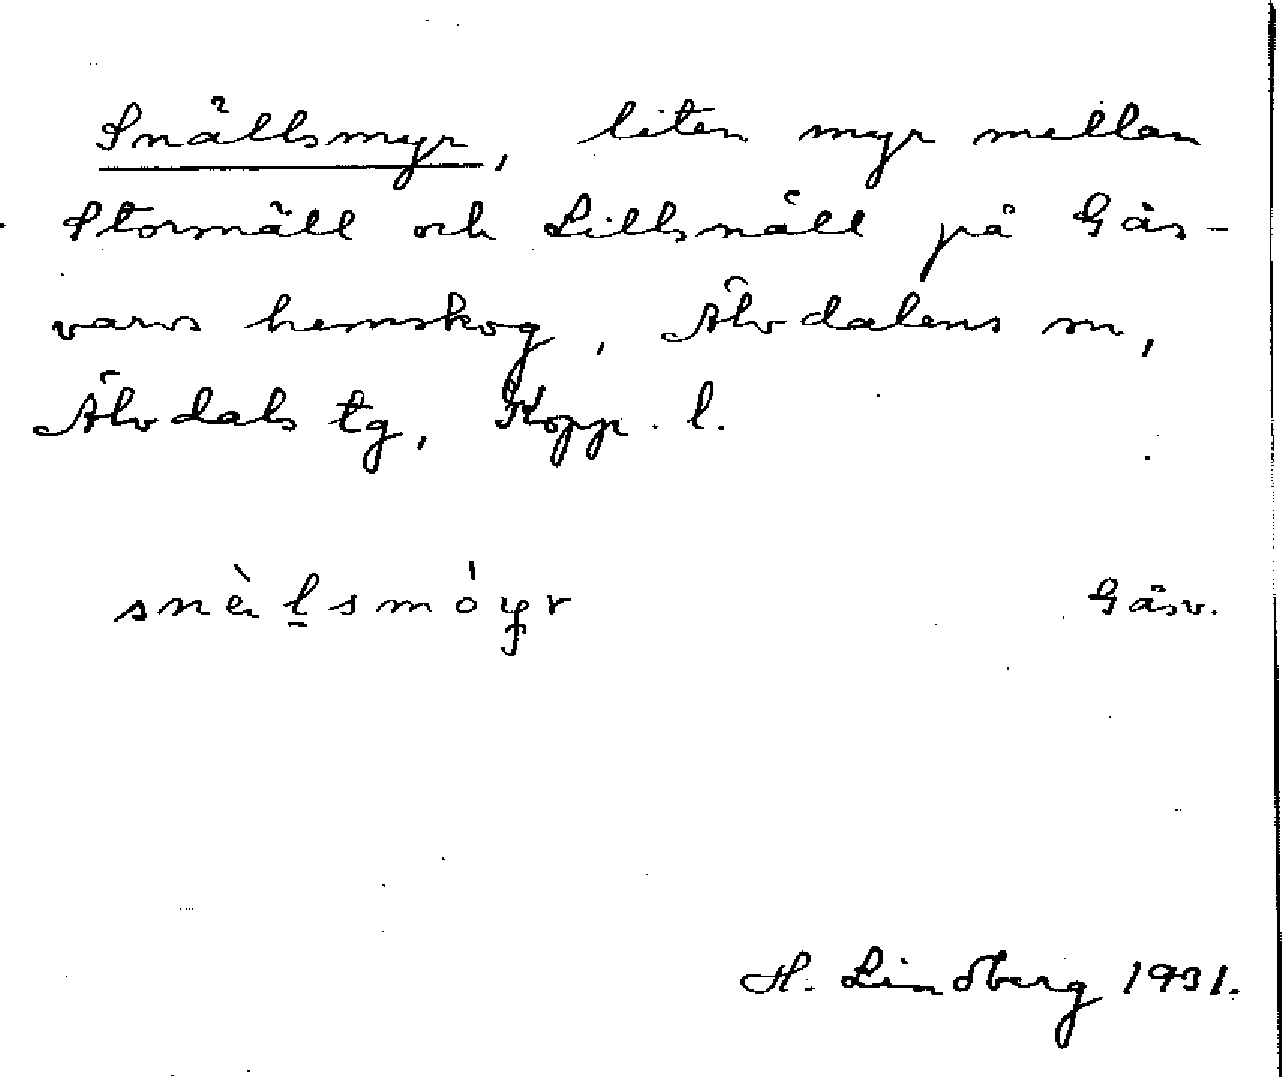 Snällsmyr, liten myr mellan
Storsnäll och Lillsnäll på Gås-
varvs hemskog, Älvdalens sn,
Älvdals tg, Kopp. l.
snè̀l̠smóyr Gåsv.
H. Lindberg 1931.